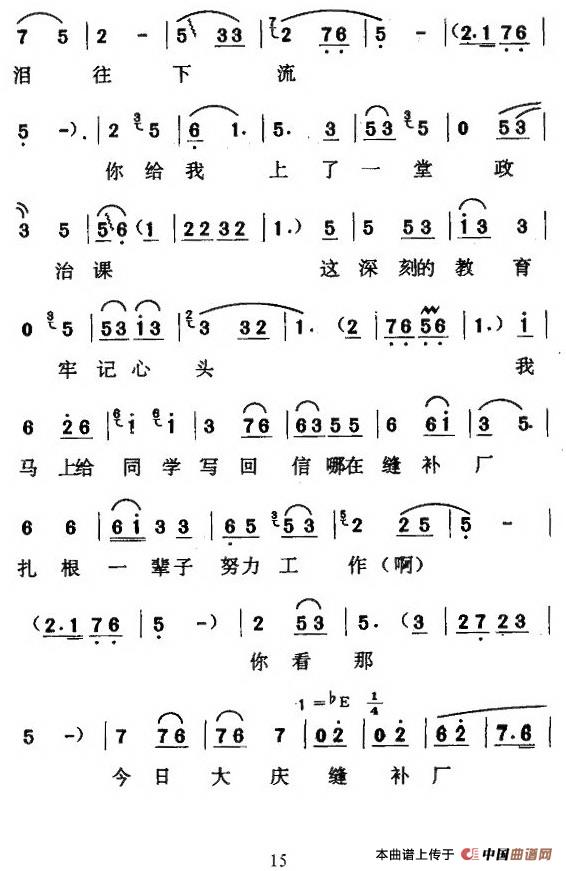 7 5 | 2 - | 5 33 | 7 2 76 | 5 - | (2.1 76 |
泪 往 下 流
5 -). | 2 3 5 | 6 1. | 5. 3 | 53 3 5 | 0 53 |
你 给 我 上 了 一 堂 政
3 5 | 56 (1 | 22 32 | 1.) 5 | 5 53 | i3 3 |
治 课 这 深 刻 的 教 育
0 3 5 | 53 i3 | 2 3 32 | 1. (2 | 76 56 | 1.) i |
牢 记 心 头 我
6 26 | 6 i 6 i | 3 76 | 63 55 | 6 6i | 3 5. |
马 上给 同 学 写 回 信 哪在 缝 补 厂
6 6 | 6i 33 | 65 3 53 | 5 2 25 | 5 - |
扎 根 一 辈子 努力 工 作(啊)
(2.1 76 | 5 -) | 2 53 | 5. (3 | 27 23 |
你 看 那
1=♭E 1/4
5 -) | 7 76 | 76 7 | 02 | 02 | 62 | 7.6 |
今 日 大 庆 缝 补 厂
15
本曲谱上传于 中国曲谱网